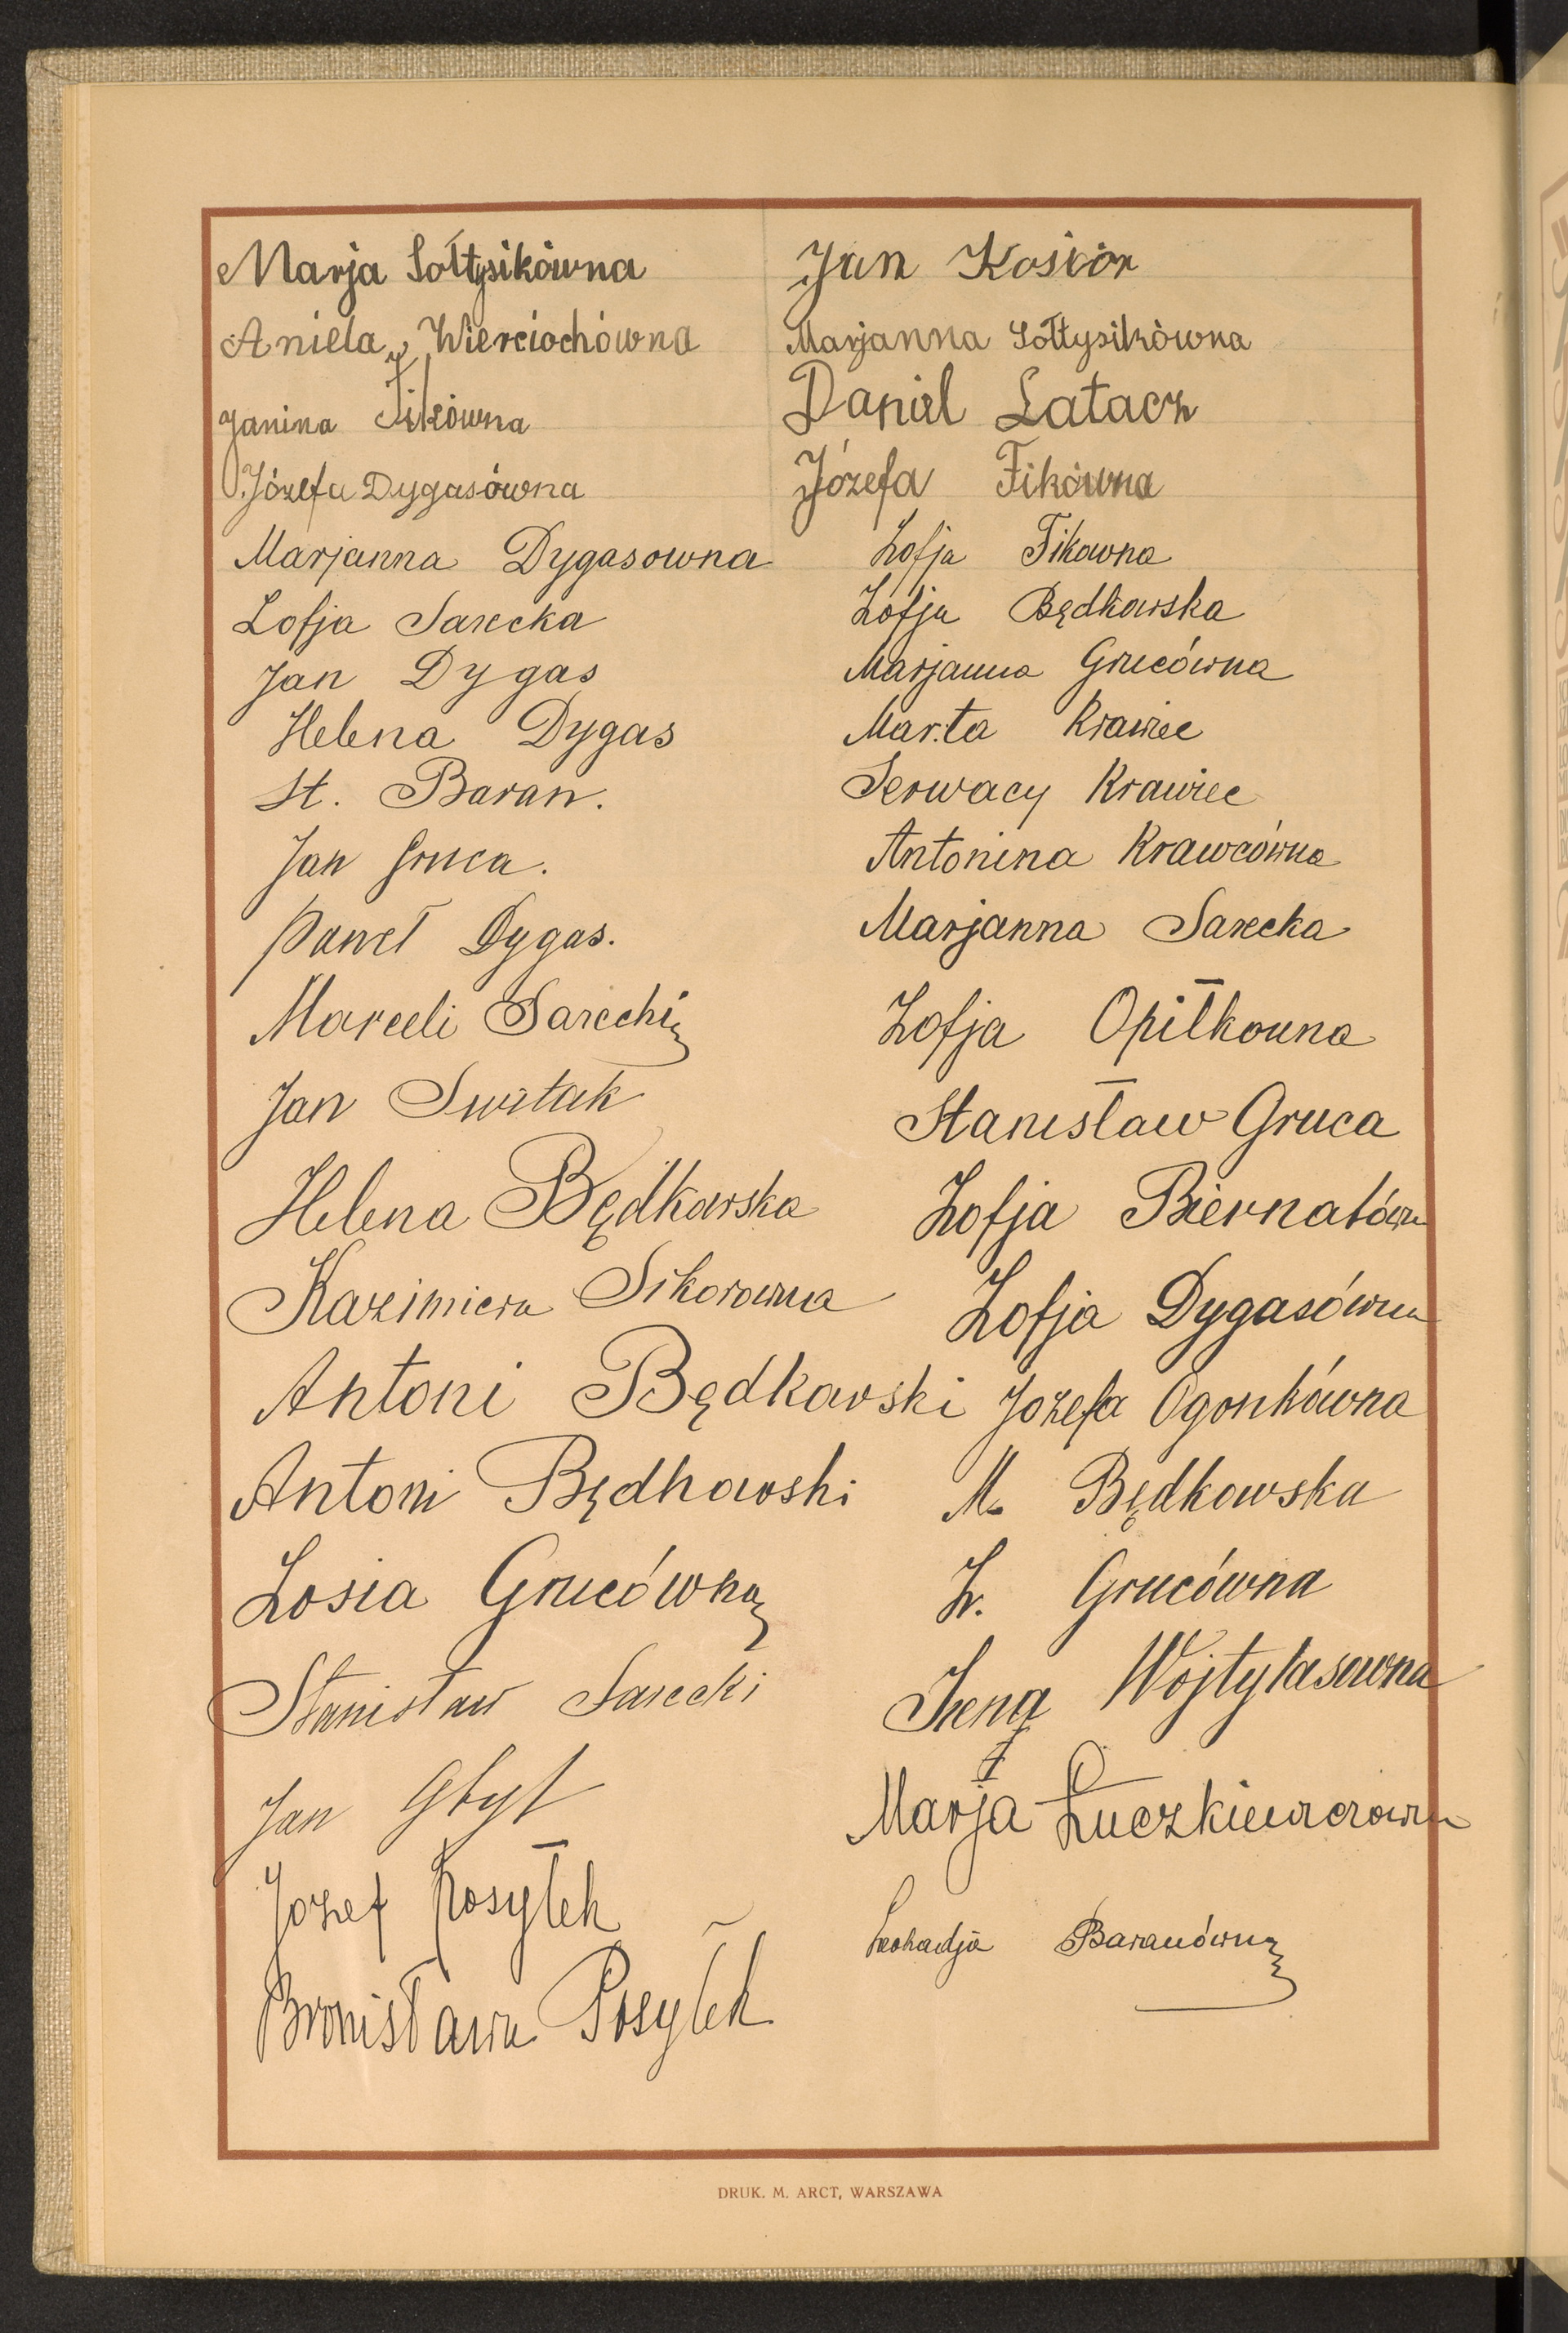 Marja Sołtysikówna
Aniela Wierciochówna
Janina Fikówna
Józefa Dygasówna
Marjanna Dygasowna
Zofja Sarecka
Jan Dygas
Helena Dygas
St. Baran.
Jan Gruca.
Paweł Dygas.
Marceli Sarecki
Jan Switak
Helena Będkowska
Kazimiera Sikorowna
Antoni Będkowski
Antoni Będkowski
Zosia Grucówna
Stanisław Sarecki
Jan
Jozef Posyłek
Bronisława Posyłek
Jan Kosiór
Marjanna Sołtysikówna
Daniel Latacz
Józefa Fikówna
Zofja Fikowna
Zofja Będkowska
Marjanna Grucówna
Marta Krawiec
Serwacy Krawiec
Antonina Krawcówna
Marjanna Sarecka
Zofja Opiłkowna
Stanisław Gruca
Zofja Biernatówna
Zofja Dygasówna
Jozefa Ogonkówna
M. Będkowska
Z. Grucówna
Irena Wojtylasowna
Marja Łuczkiewiczowna
Leokadja Baranówna
DRUK. M. ARCT, WARSZAWA